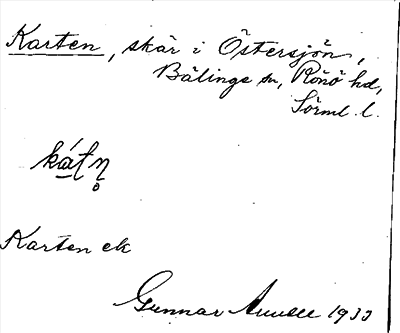 Karten, skär i Östersjön,
Bälinge sn, Rönö hd,
Sörml. l.
Karten ek
Gunnar 1933